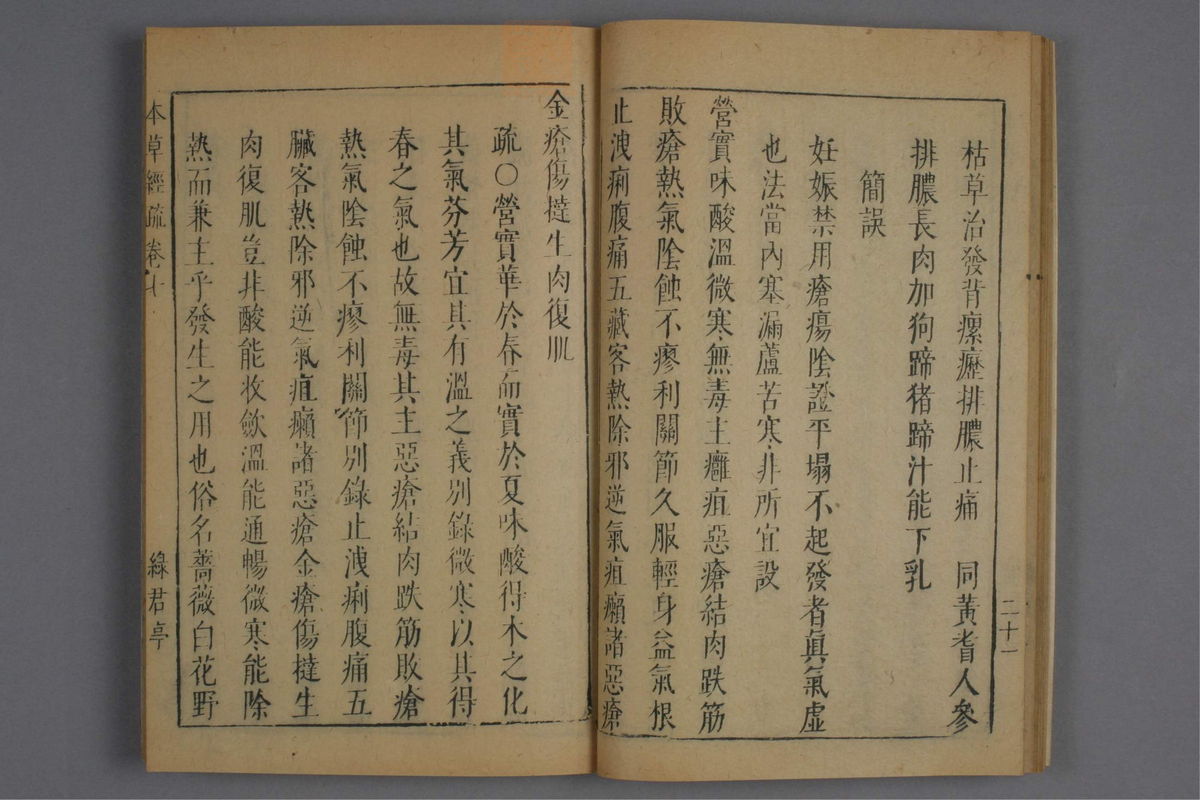 枯草治發背瘰癧排膿止痛　同黃耆人參
排膿長肉加狗蹄猪蹄汁能下乳
簡誤
妊娠禁用瘡瘍陰證平塌不起發者眞氣虛
也法當內塞漏蘆苦寒非所宜設
營實味酸溫微寒無毒主癰疽惡瘡結肉跌筋
敗瘡熱氣陰蝕不瘳利關節久服輕身益氣根
止洩痢腹痛五藏客熱除邪逆氣疽癩諸惡瘡
二十一
金瘡傷撻生肉復肌
疏○營實華於春而實於夏味酸得木之化
其氣芬芳宜其有溫之義別錄微寒以其得
春之氣也故無毒其主惡瘡結肉跌筋敗瘡
熱氣陰蝕不瘳利關節別錄止洩痢腹痛五
臟客熱除邪逆氣疽癩諸惡瘡金瘡傷撻生
肉復肌豈非酸能收斂溫能通暢微寒能除
熱而兼主乎發生之用也俗名薔薇白花野
本草經疏卷七
綠君亭